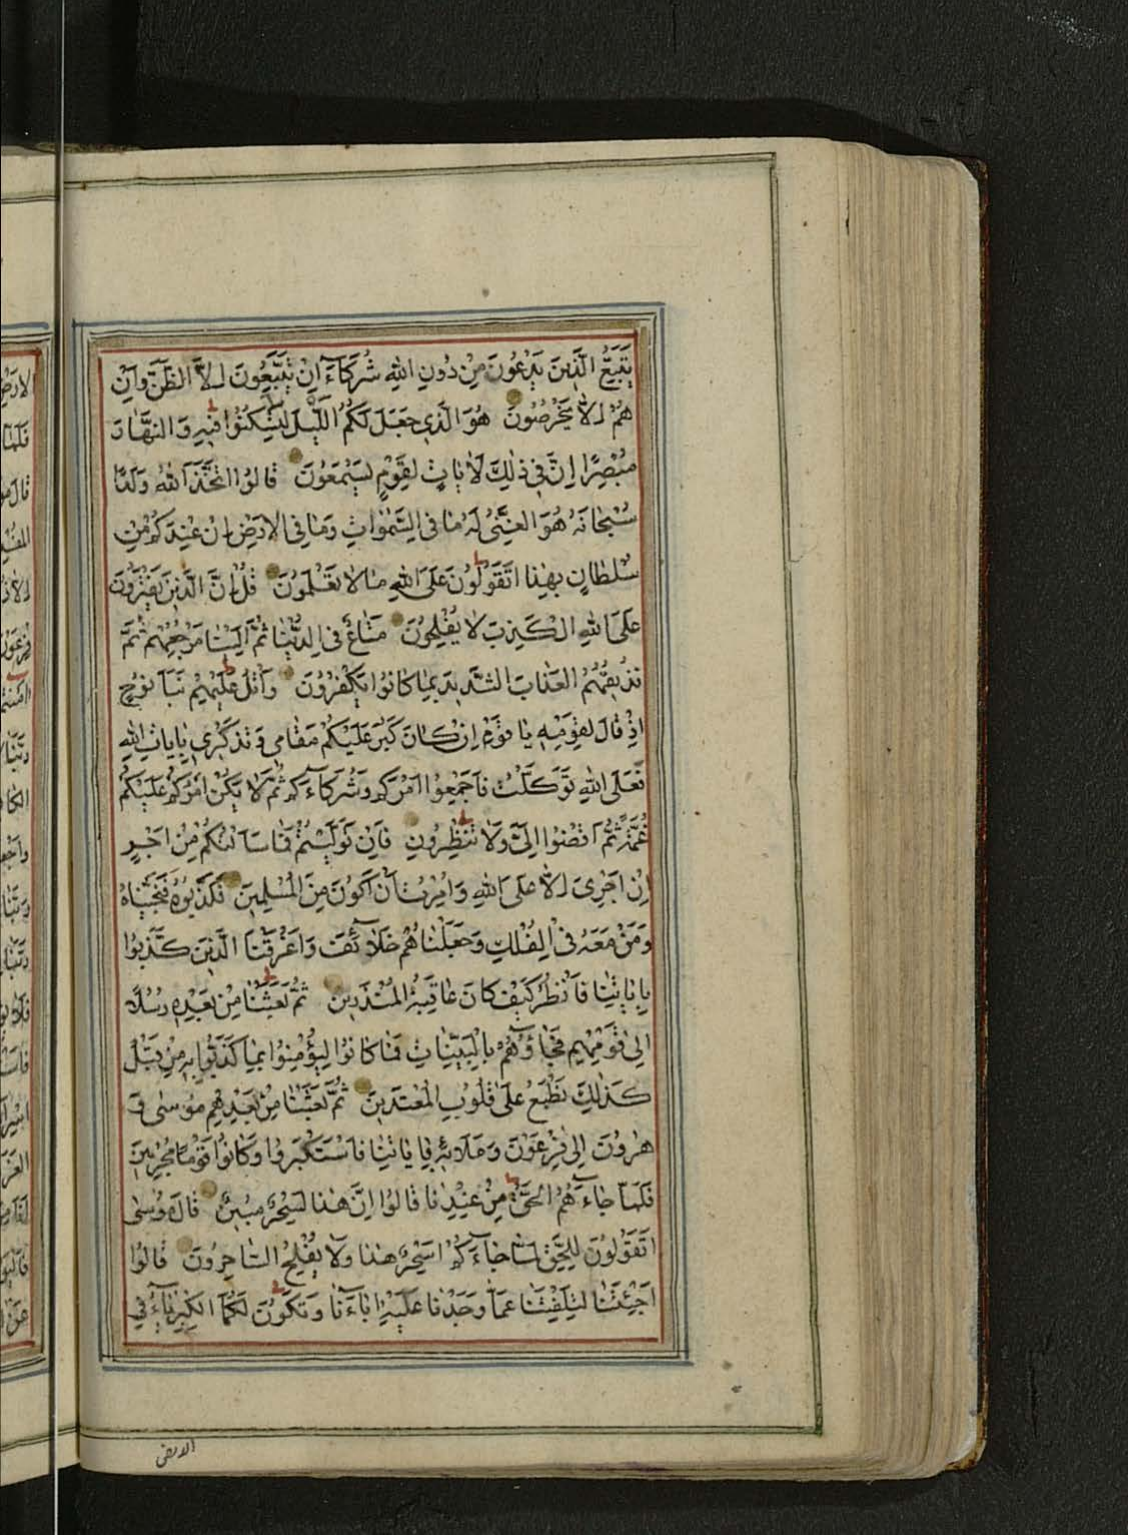 يَتَّبِعُ الَّذِينَ يَدْعُونَ مِنْ دُونِ اللهِ شُرَكَآءَ اِنْ يَتَّبِعُونَ اِلاَّ الظَّنَّ وَاِنْ
هُمْ اِلاَّ يَخْرُصُونَ هُوَ الَّذِي جَعَلَ لَكُمُ اللَّيْلَ لِتَسْكُنُوا فِيهِ وَالنَّهَارَ
مُبْصِرًا اِنَّ فِي ذٰلِكَ لَاٰيَاتٍ لِقَوْمٍ يَسْمَعُونَ قَالُوا اتَّخَذَ اللهُ وَلَدًا
سُبْحَانَهُ هُوَ الْغَنِيُّ لَهُ مَا فِي السَّمٰوَاتِ وَمَا فِي الْاَرْضِ اِنْ عِنْدَكُمْ مِنْ
سُلْطَانٍ بِهٰذَا اَتَقُولُونَ عَلَى اللهِ مَا لَا تَعْلَمُونَ قُلْ اِنَّ الَّذِينَ يَفْتَرُونَ
عَلَى اللهِ الْكَذِبَ لَا يُفْلِحُونَ مَتَاعٌ فِي الدُّنْيَا ثُمَّ اِلَيْنَا مَرْجِعُهُمْ ثُمَّ
نُذِيقُهُمُ الْعَذَابَ الشَّدِيدَ بِمَا كَانُوا يَكْفُرُونَ وَاتْلُ عَلَيْهِمْ نَبَاَ نُوحٍ
اِذْ قَالَ لِقَوْمِهِ يَا قَوْمِ اِنْ كَانَ كَبُرَ عَلَيْكُمْ مَقَامِي وَتَذْكِيرِي بِاٰيَاتِ اللهِ
فَعَلَى اللهِ تَوَكَّلْتُ فَاَجْمِعُوا اَمْرَكُمْ وَشُرَكَآءَكُمْ ثُمَّ لَا يَكُنْ اَمْرُكُمْ عَلَيْكُمْ
غُمَّةً ثُمَّ اقْضُوا اِلَيَّ وَلَا تُنْظِرُونِ فَاِنْ تَوَلَّيْتُمْ فَمَا سَاَلْتُكُمْ مِنْ اَجْرٍ
اِنْ اَجْرِيَ اِلاَّ عَلَى اللهِ وَاُمِرْتُ اَنْ اَكُونَ مِنَ الْمُسْلِمِينَ فَكَذَّبُوهُ فَنَجَّيْنَاهُ
وَمَنْ مَعَهُ فِي الْفُلْكِ وَجَعَلْنَاهُمْ خَلَآئِفَ وَاَغْرَقْنَا الَّذِينَ كَذَّبُوا
بِاٰيَاتِنَا فَانْظُرْ كَيْفَ كَانَ عَاقِبَةُ الْمُنْذَرِينَ ثُمَّ بَعَثْنَا مِنْ بَعْدِهِ رُسُلًا
اِلٰى قَوْمِهِمْ فَجَاؤُهُمْ بِالْبَيِّنَاتِ فَمَا كَانُوا لِيُؤْمِنُوا بِمَا كَذَّبُوا بِهِ مِنْ قَبْلُ
كَذٰلِكَ نَطْبَعُ عَلٰى قُلُوبِ الْمُعْتَدِينَ ثُمَّ بَعَثْنَا مِنْ بَعْدِهِمْ مُوسٰى وَ
هٰرُونَ اِلٰى فِرْعَوْنَ وَمَلَائِهِ بِاٰيَاتِنَا فَاسْتَكْبَرُوا وَكَانُوا قَوْمًا مُجْرِمِينَ
فَلَمَّا جَآءَهُمُ الْحَقُّ مِنْ عِنْدِنَا قَالُوا اِنَّ هٰذَا لَسِحْرٌ مُبِينٌ قَالَ مُوسٰى
اَتَقُولُونَ لِلْحَقِّ لَمَّا جَآءَكُمْ اَسِحْرٌ هٰذَا وَلَا يُفْلِحُ السَّاحِرُونَ قَالُوا
اَجِئْتَنَا لِتَلْفِتَنَا عَمَّا وَجَدْنَا عَلَيْهِ اٰبَآءَنَا وَتَكُونَ لَكُمَا الْكِبْرِيَآءُ فِي
الارض